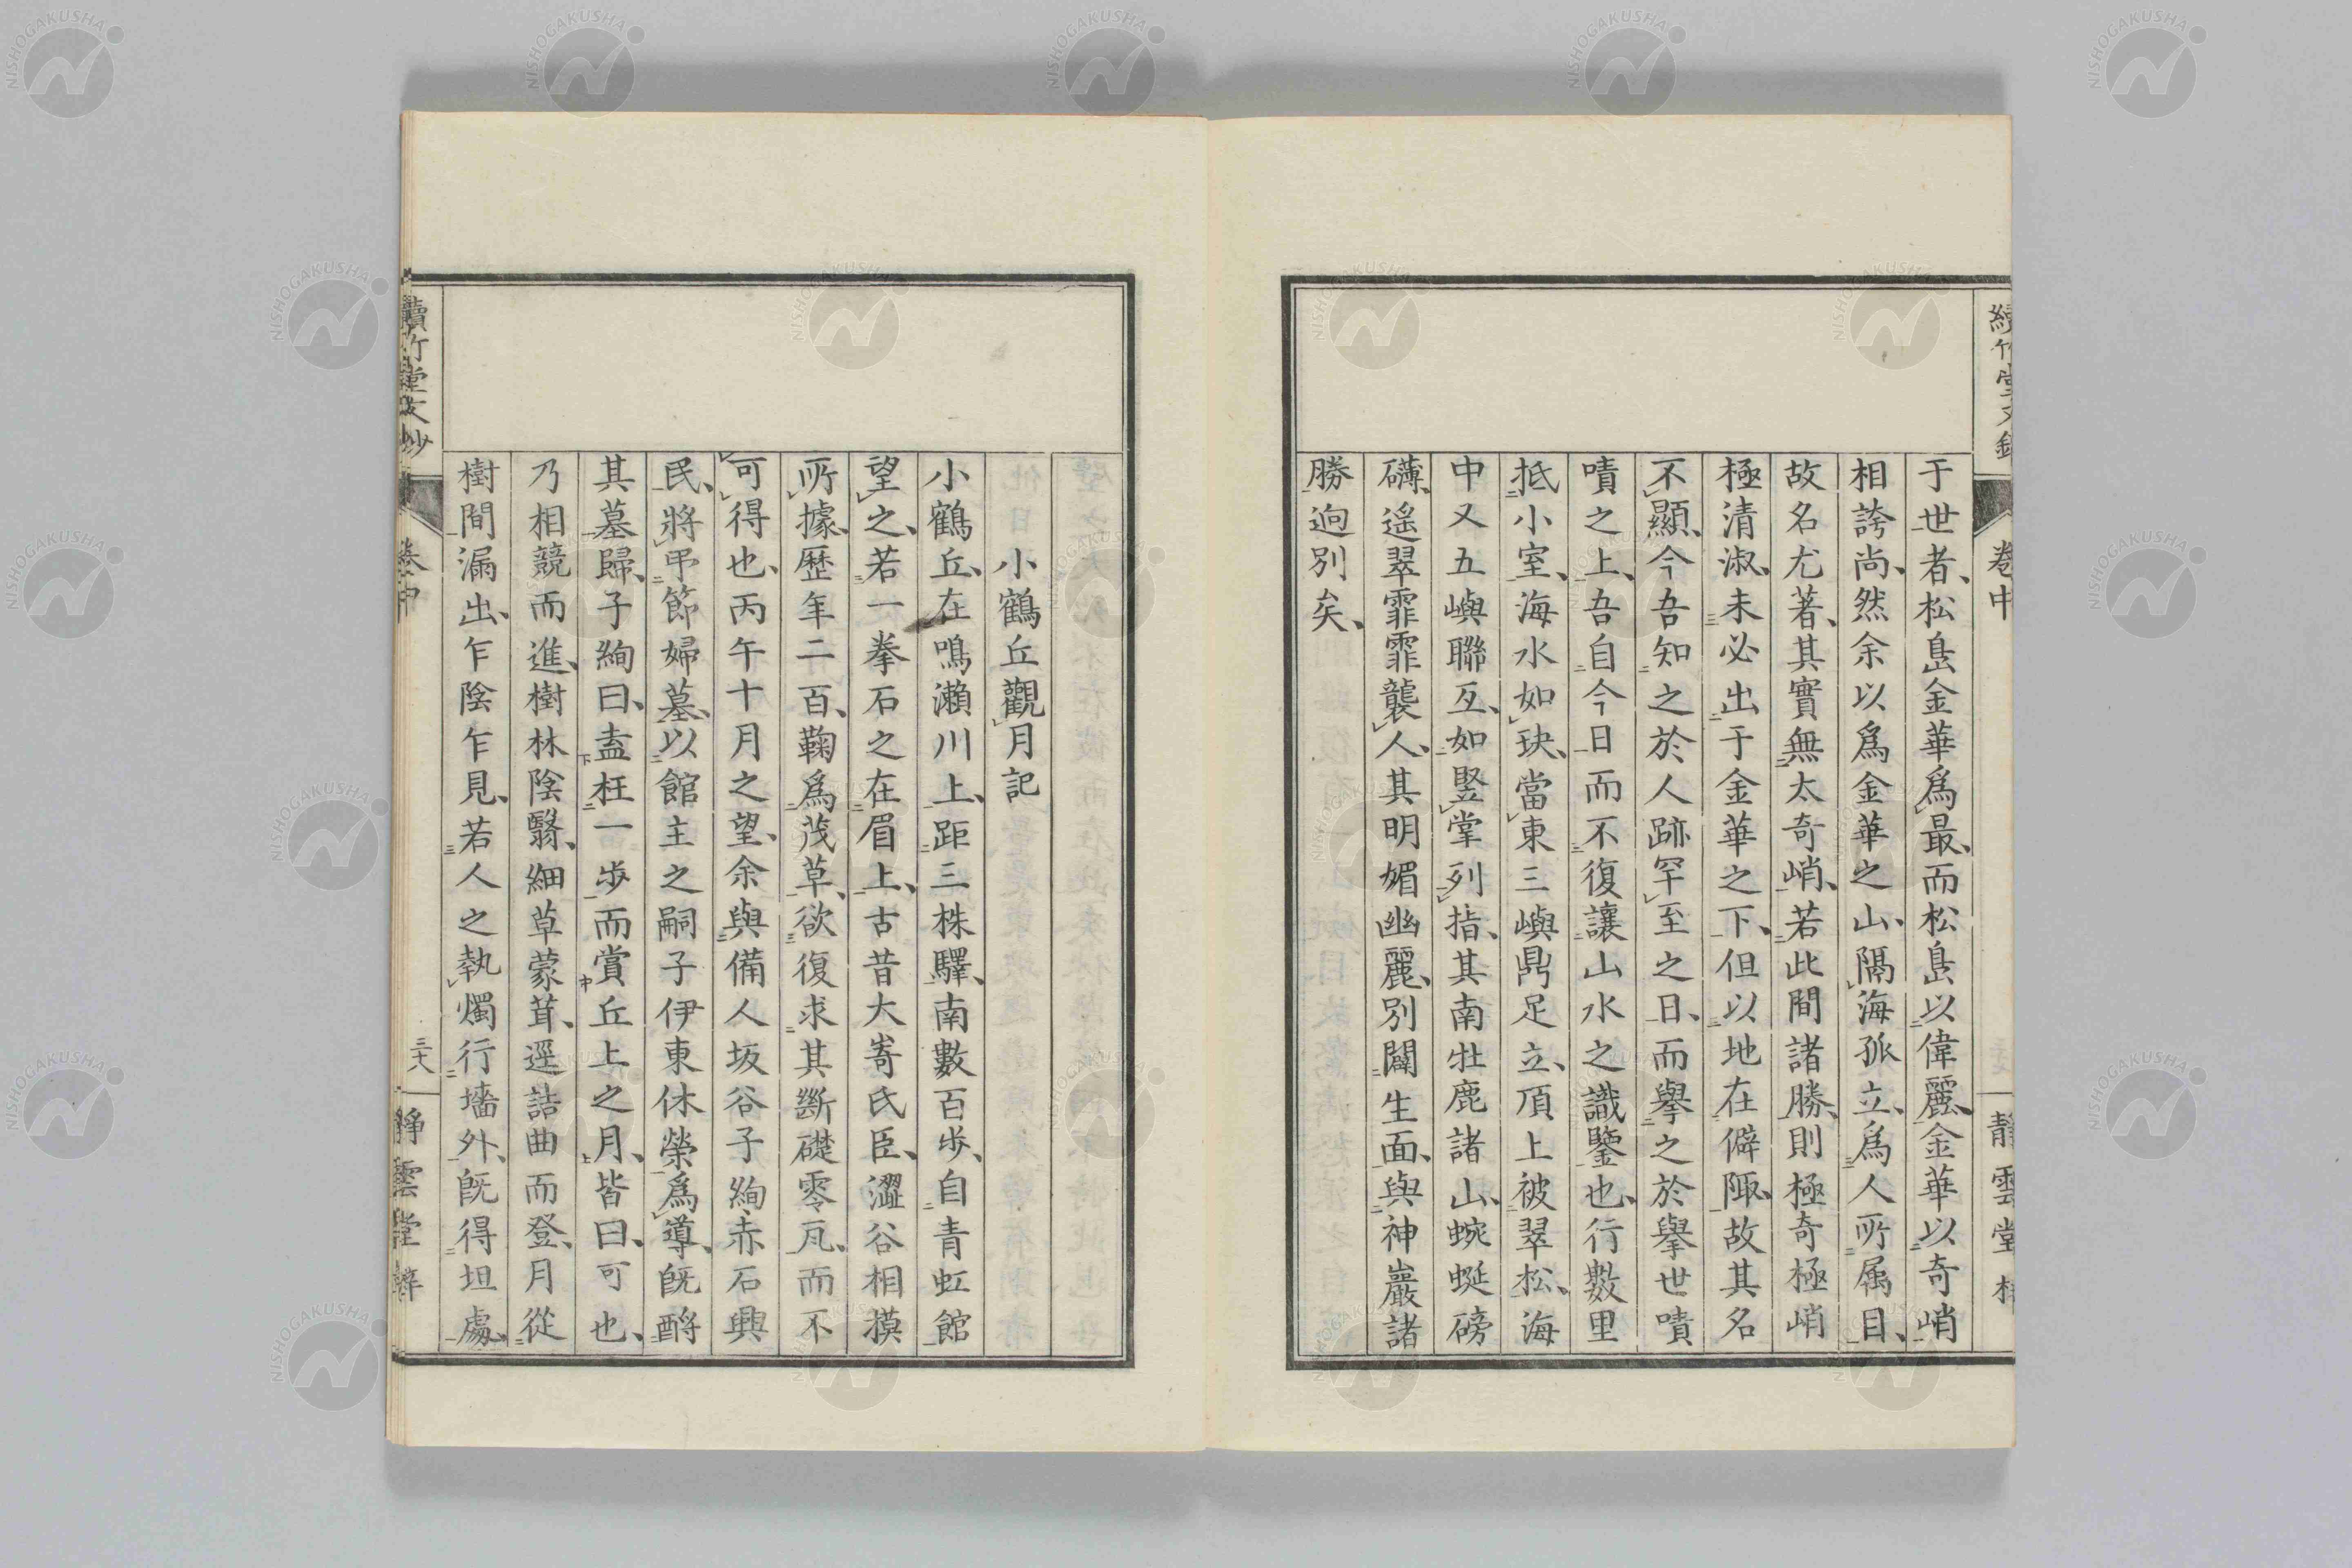 于世者、松島金華爲最、而松島以偉麗、金華以奇峭
相誇尚、然余以爲金華之山、隔海孤立、爲人所属目、
故名尤著、其實無太奇峭、若此間諸勝、則極奇極峭
極清淑、未必出于金華之下、但以地在僻陬、故其名
不顯、今吾知之於人跡罕至之日、而擧之於擧世嘖
嘖之上、吾自今日而不復讓山水之識鑒也、行數里
抵小室、海水如玦、當東三嶼鼎足立、頂上被翠松、海
中又五嶼聯互、如竪掌列指、其南牡鹿諸山、蜿蜒磅
礴、遙翠霏霏襲人、其明媚幽麗、別闢生面、與神巖諸
勝逈別矣、
卷中
小鶴丘觀月記
小鶴丘、在鳴瀬川上、距三株驛、南數百歩、自青虹館
望之、若一拳石之在眉上、古昔大嵜氏臣、澀谷相摸
所據、歴年二百、鞠爲茂草、欲復求其斷礎零瓦、而不
可得也、丙午十月之望、余與備人坂谷子絢赤石興
民、將弔節婦墓、以館主之嗣子伊東休榮爲導、既酹
其墓歸、子絢曰、盍枉一歩而賞丘上之月、皆曰、可也、
乃相競而進、樹林陰翳、細草蒙茸、逕詰曲而登、月從
樹間漏出、乍陰乍見、若人之執燭行墻外、既得坦處、
續竹堂文鈔
卷中
三十八